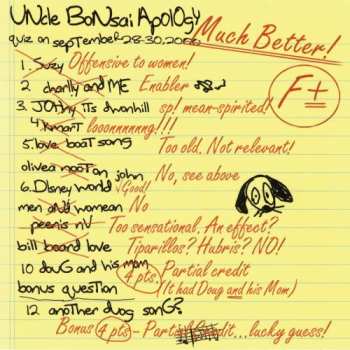 UNcle BoNsai ApOlOgy
quiz on september 28-30, 2006
Much Better!
F±
1. Suzy Offensive to women!
2 charlly and ME Enabler
3. JOHny ITs dwnhill so! mean-spirited!
4. Kmart looonnnnnng!!!
5. love boat song Too old. Not relevant!
olivea nooT on john No, see above
6. DIsney world √Good!
men and womean No
peenis nV Too sensational. An effect?
bill board love Tiparillos? Hubris? NO!
10 douG and his mom 4 pts. Partial credit
bonus question (It had Doug and his Mom)
12 another dog sonG?
Bonus 4 pts - Partial Credit...lucky guess!